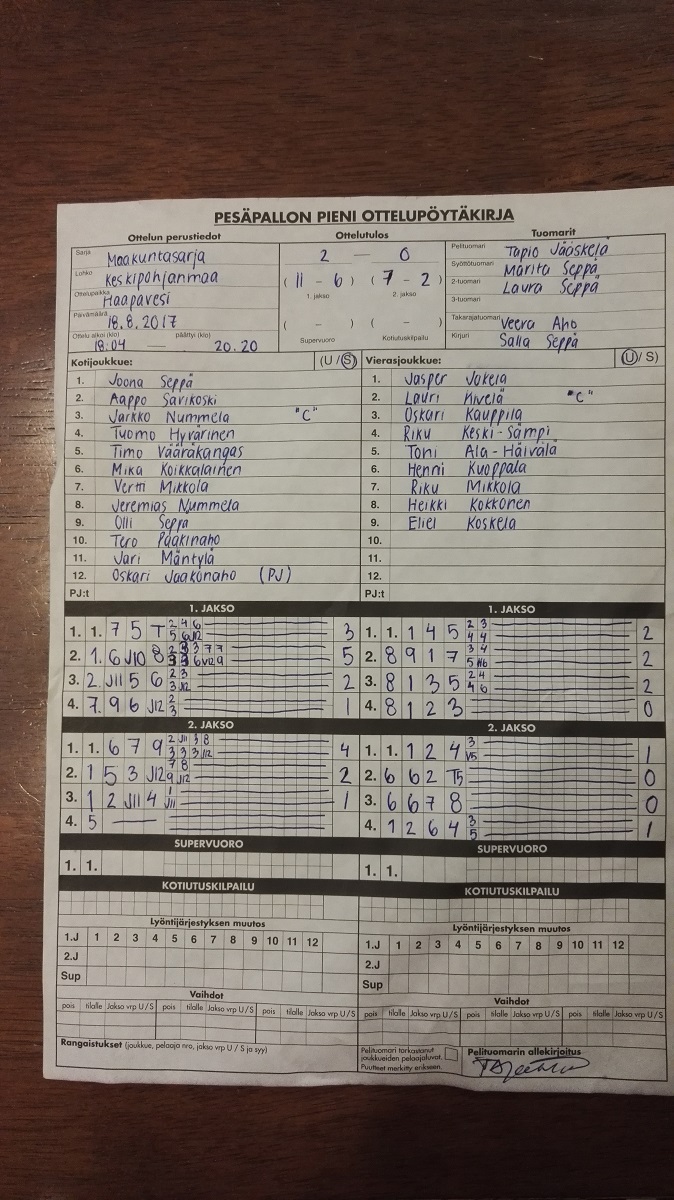 PESÄPALLON PIENI OTTELUPÖYTÄKIRJA
Ottelun perustiedot
Sarja Maakuntasarja
Lohko Keskipohjanmaa
Ottelupaikka Haapavesi
Päivämäärä 18.8.2017
Ottelu alkoi (klo) päättyi (klo)
18.04 20.20
Ottelutulos
2 — 0
( 11 - 6 ) ( 7 - 2 )
1. jakso 2. jakso
( - ) ( - )
Supervuoro Kotiutuskilpailu
Tuomarit
Pelituomari Tapio Jääskelä
Syöttötuomari Marita Seppä
2-tuomari Laura Seppä
3-tuomari
Takarajatuomari Veera Aho
Kirjuri Salla Seppä
Kotijoukkue: (U / S)
1. Joona Seppä
2. Aappo Savikoski
3. Jarkko Nummela "C"
4. Tuomo Hyvärinen
5. Timo Vääräkangas
6. Mika Koikkalainen
7. Mikkola
8. Jeremias Nummela
9. Olli Seppä
10. Tero Pääkinaho
11. Jari Mäntylä
12. Oskari Jaakonaho (PJ)
PJ:t
Vierasjoukkue: (U / S)
1. Jasper Jokela
2. Lauri Kivelä "C"
3. Oskari Kauppila
4. Riku Keski-Sämpi
5. Toni Ala-Häivälä
6. Henni Kuoppala
7. Riku Mikkola
8. Heikki Kokkonen
9. Eliel Koskela
10.
11.
12.
PJ:t
1. JAKSO
1. 1. 7 5 T 2 4 6 5 6 J12 3
2. 1. 6 J10 8 5
3. 2 J11 5 6 2 3 3 J12 2
4. 7 9 6 J12 2 3 1
1. JAKSO
1. 1. 1 4 5 2 3 4 4 2
2. 8 9 1 7 3 4 5 2
3. 8 1 3 5 2 4 4 6 2
4. 8 1 2 3 0
2. JAKSO
1. 1. 6 7 9 2 J11 3 8 3 3 3 J12 4
2. 1 5 3 J12 7 8 9 J12 2
3. 1 2 J11 4 1 J11 1
4. 5 —
2. JAKSO
1. 1. 1 2 4 3 V5 1
2. 6 6 2 T5 0
3. 6 6 7 8 0
4. 1 2 6 4 3 5 1
SUPERVUORO
1. 1.
SUPERVUORO
1. 1.
KOTIUTUSKILPAILU
KOTIUTUSKILPAILU
Lyöntijärjestyksen muutos
1.J 1 2 3 4 5 6 7 8 9 10 11 12
2.J
Sup
Lyöntijärjestyksen muutos
1.J 1 2 3 4 5 6 7 8 9 10 11 12
2.J
Sup
Vaihdot
pois tilalle Jakso vrp U/S pois tilalle Jakso vrp U/S pois tilalle Jakso vrp U/S
Vaihdot
pois tilalle Jakso vrp U/S pois tilalle Jakso vrp U/S pois tilalle Jakso vrp U/S
Rangaistukset (joukkue, pelaaja nro, jakso vrp U / S ja syy)
Pelituomari tarkastanut
joukkueiden pelaajaluvat.
Puutteet merkitty erikseen.
Pelituomarin allekirjoitus